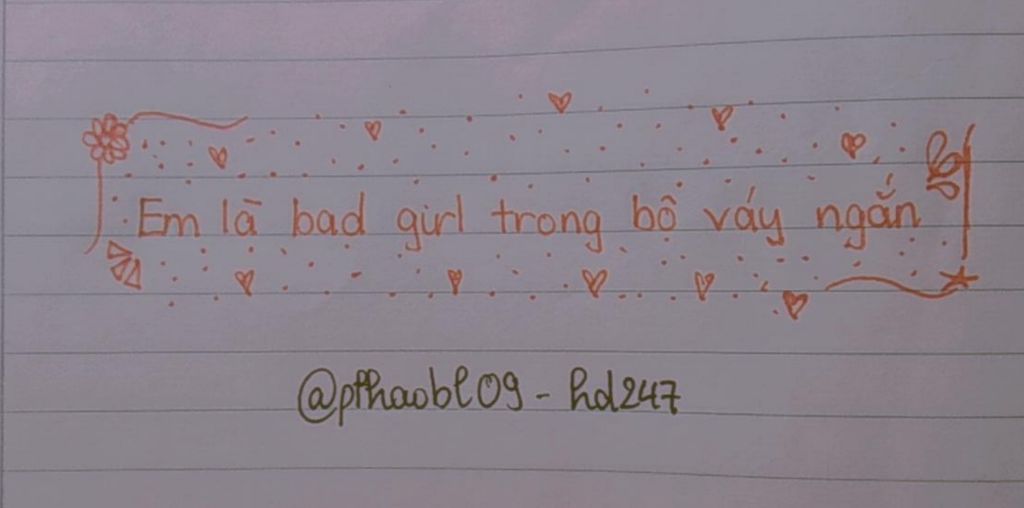 Em là bad girl trong bộ váy ngắn
@pthaobl09 - hd247